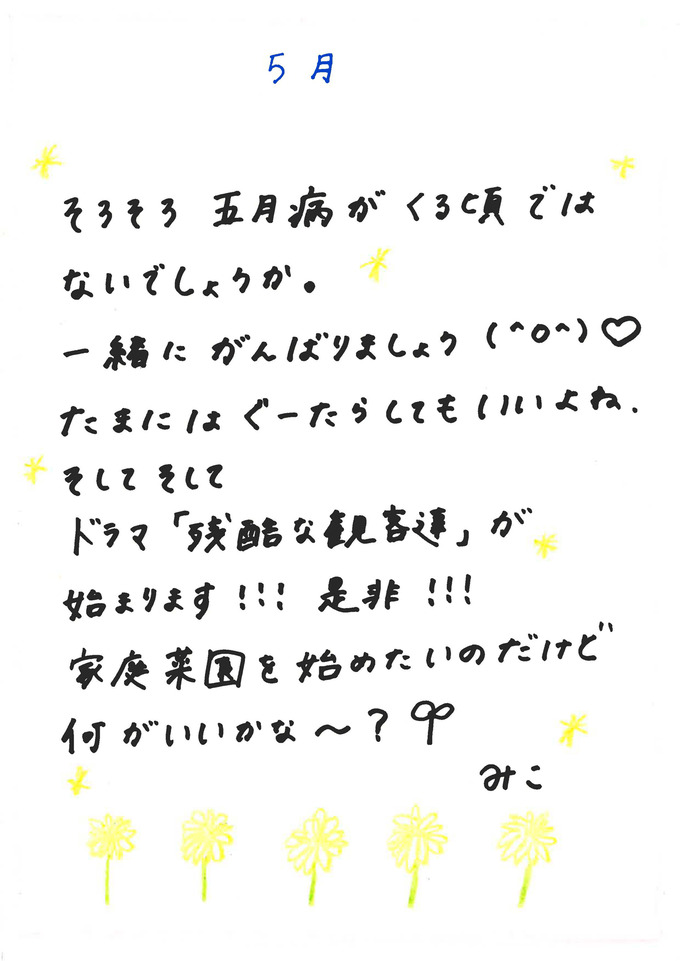 5月
そろそろ 五月病が くる頃では
ないでしょうか。
一緒に がんばりましょう (^o^)♡
たまには ぐーたらしても いいよね.
そして そして
ドラマ「残酷な観客達」が
始まります!!! 是非!!!
家庭菜園を 始めたいのだけど
何がいいかな〜?
みこ